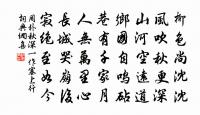 柳色尚沈沈
風吹秋更深
山河空遠道
鄉國自鳴砧
巷有千家月
人無萬里心
長城哭崩後
寂絕至如今
周朴秋深一作塞上行
詞典網